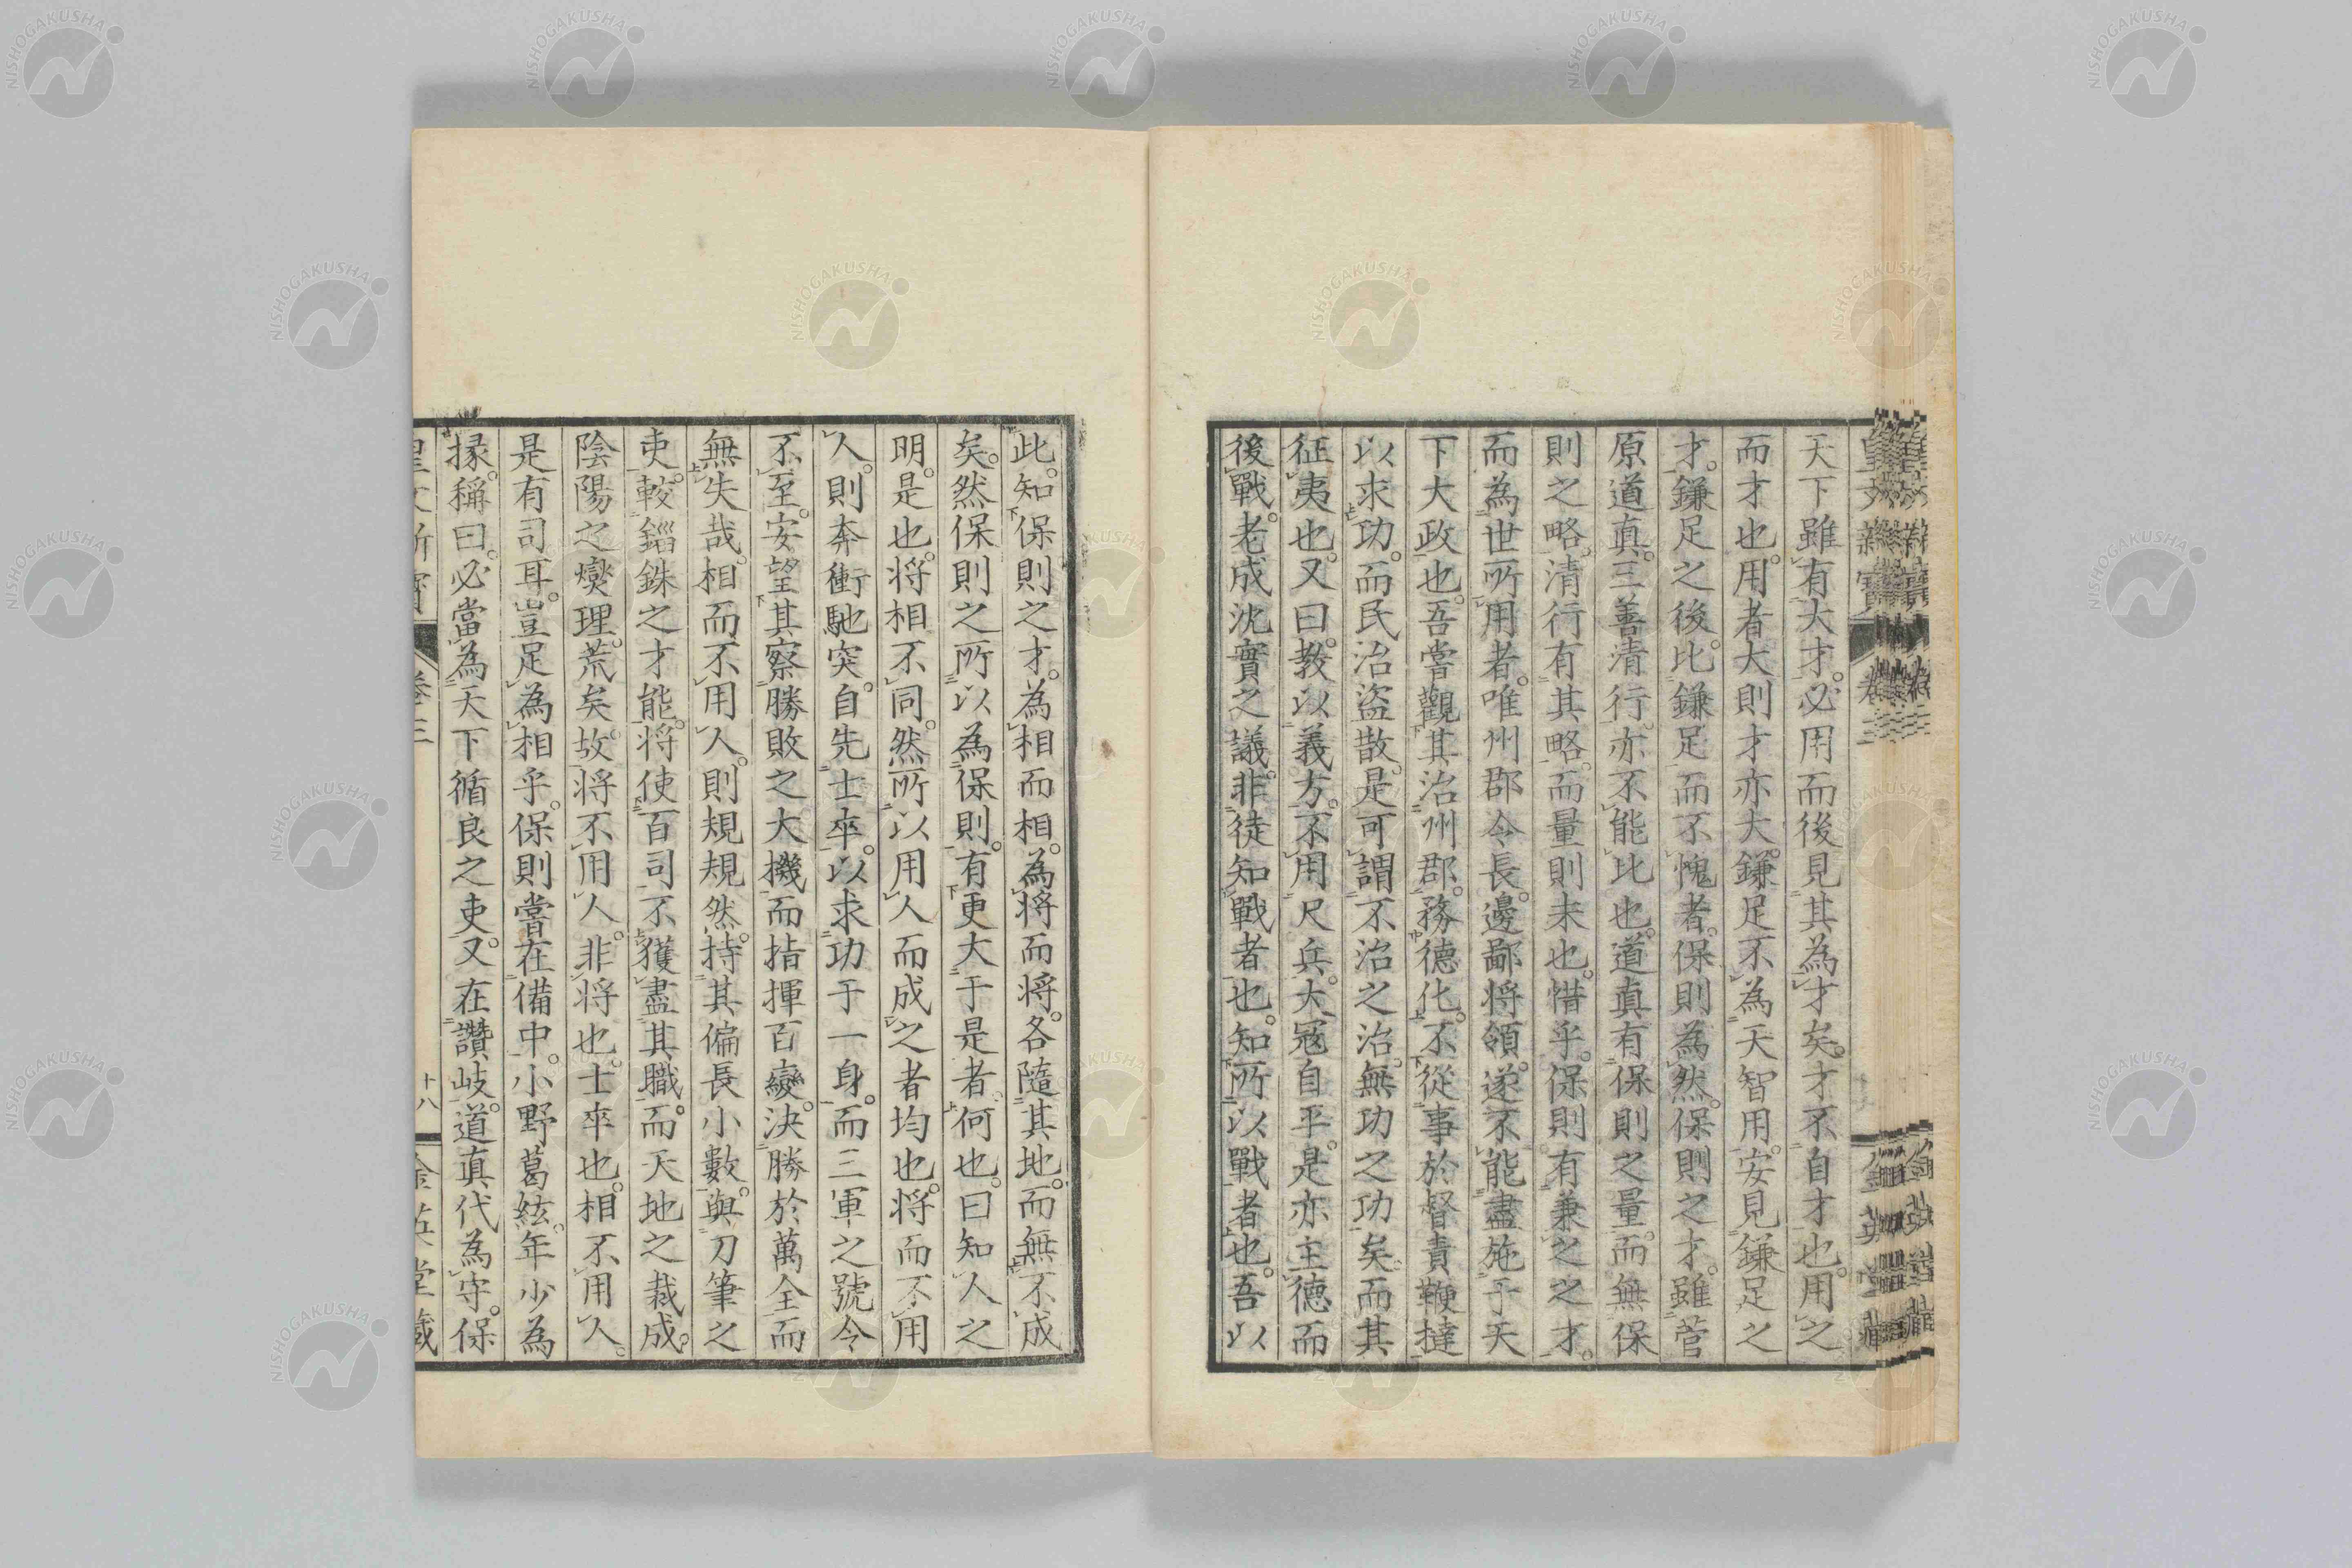 天下雖有大才。必用而後見其為才矣。才不自才也。用之
而才也。用者大則才亦大。鎌足不為天智用。安見鎌足之
才。鎌足之後。比鎌足而不愧者。保則為然。保則之才。雖菅
原道真。三善清行。亦不能比也。道真有保則之量。而無保
則之略。清行有其略。而量則未也。惜乎。保則有兼之之才。
而為世所用者。唯州郡令長。邊鄙将領。遂不能盡施于天
下大政也。吾嘗觀其治州郡。務德化。不從事於督責鞭撻
以求功。而民治盜散。是可謂不治之治。無功之功矣。而其
征夷也。又曰。教以義方。不用尺兵。大冦自平。是亦主德而
後戰。老成沈實之議。非徒知戰者也。知所以戰者也。吾以
此。知保則之才。為相而相。為将而将。各隨其地。而無不成
矣。然保則之所以為保則。有更大于是者。何也。曰知人之
明。是也。将相不同。然所以用人而成之者均也。将而不用
人。則奔衝馳突。自先士卒。以求功于一身。而三軍之號令
不至。安望其察勝敗之大機。而指揮百變。決勝於萬全而
無失哉。相而不用人。則規規然。持其偏長小數。與刀筆之
吏。較錙銖之才能。将使百司不獲盡其職。而天地之裁成。
陰陽之燮理。荒矣。故将不用人。非将也。士卒也。相不用人。
是有司耳。豈足為相乎。保則嘗在備中。小野葛絃。年少為
掾。稱曰。必當為天下循良之吏。又在讚岐。道真代為守。保
卷三 十八 金英堂藏